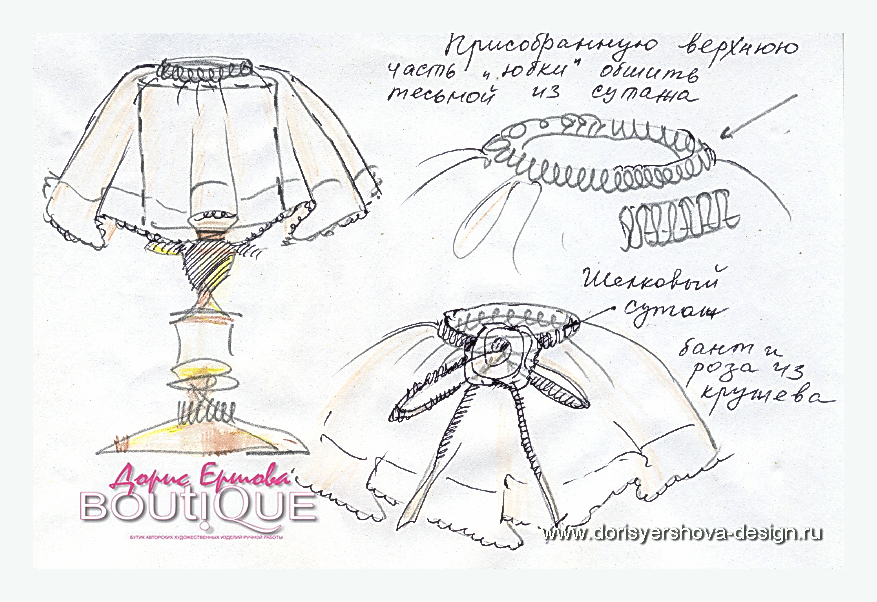 Присобранную верхнюю
часть „юбки“ обшить
тесьмой из сутажа
Шелковый
сутаж
бант и
роза из
кружева
Дорис Ершова
BOUTiQUE
БУТИК АВТОРСКИХ ХУДОЖЕСТВЕННЫХ ИЗДЕЛИЙ РУЧНОЙ РАБОТЫ
www.dorisyershova-design.ru